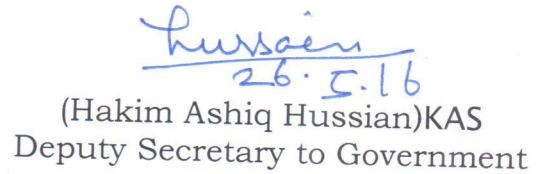 Hussain
26.5.16
(Hakim Ashiq Hussian)KAS
Deputy Secretary to Government